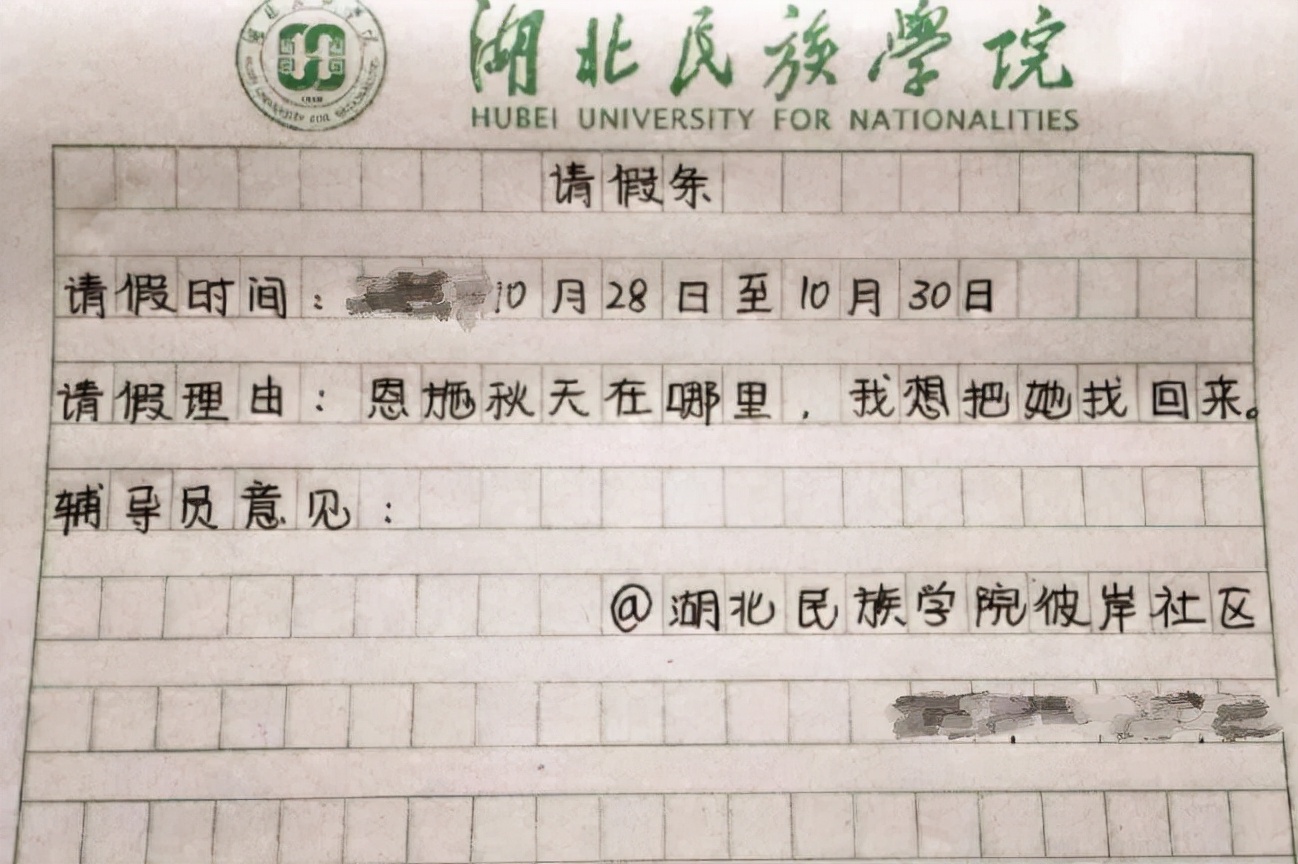 湖北民族學院
HUBEI UNIVERSITY FOR NATIONALITIES
请假条
请假时间：10月28日至10月30日
请假理由：恩施秋天在哪里，我想把她找回来。
辅导员意见：
@湖北民族学院彼岸社区